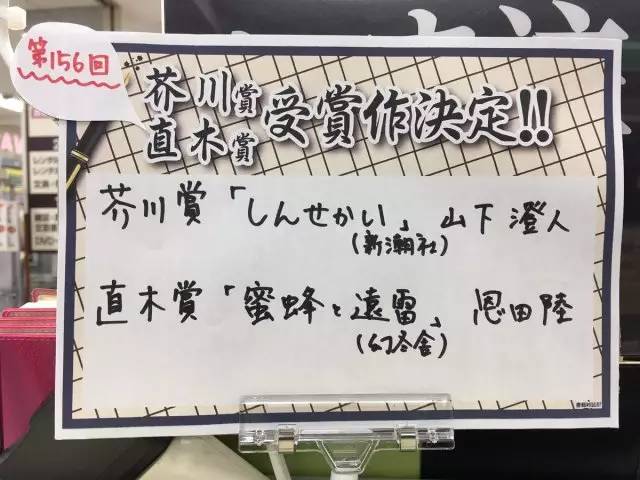 第156回
芥川賞
直木賞
受賞作決定!!
芥川賞「しんせかい」 山下澄人
(新潮社)
直木賞「蜜蜂と遠雷」 恩田陸
(幻冬舎)